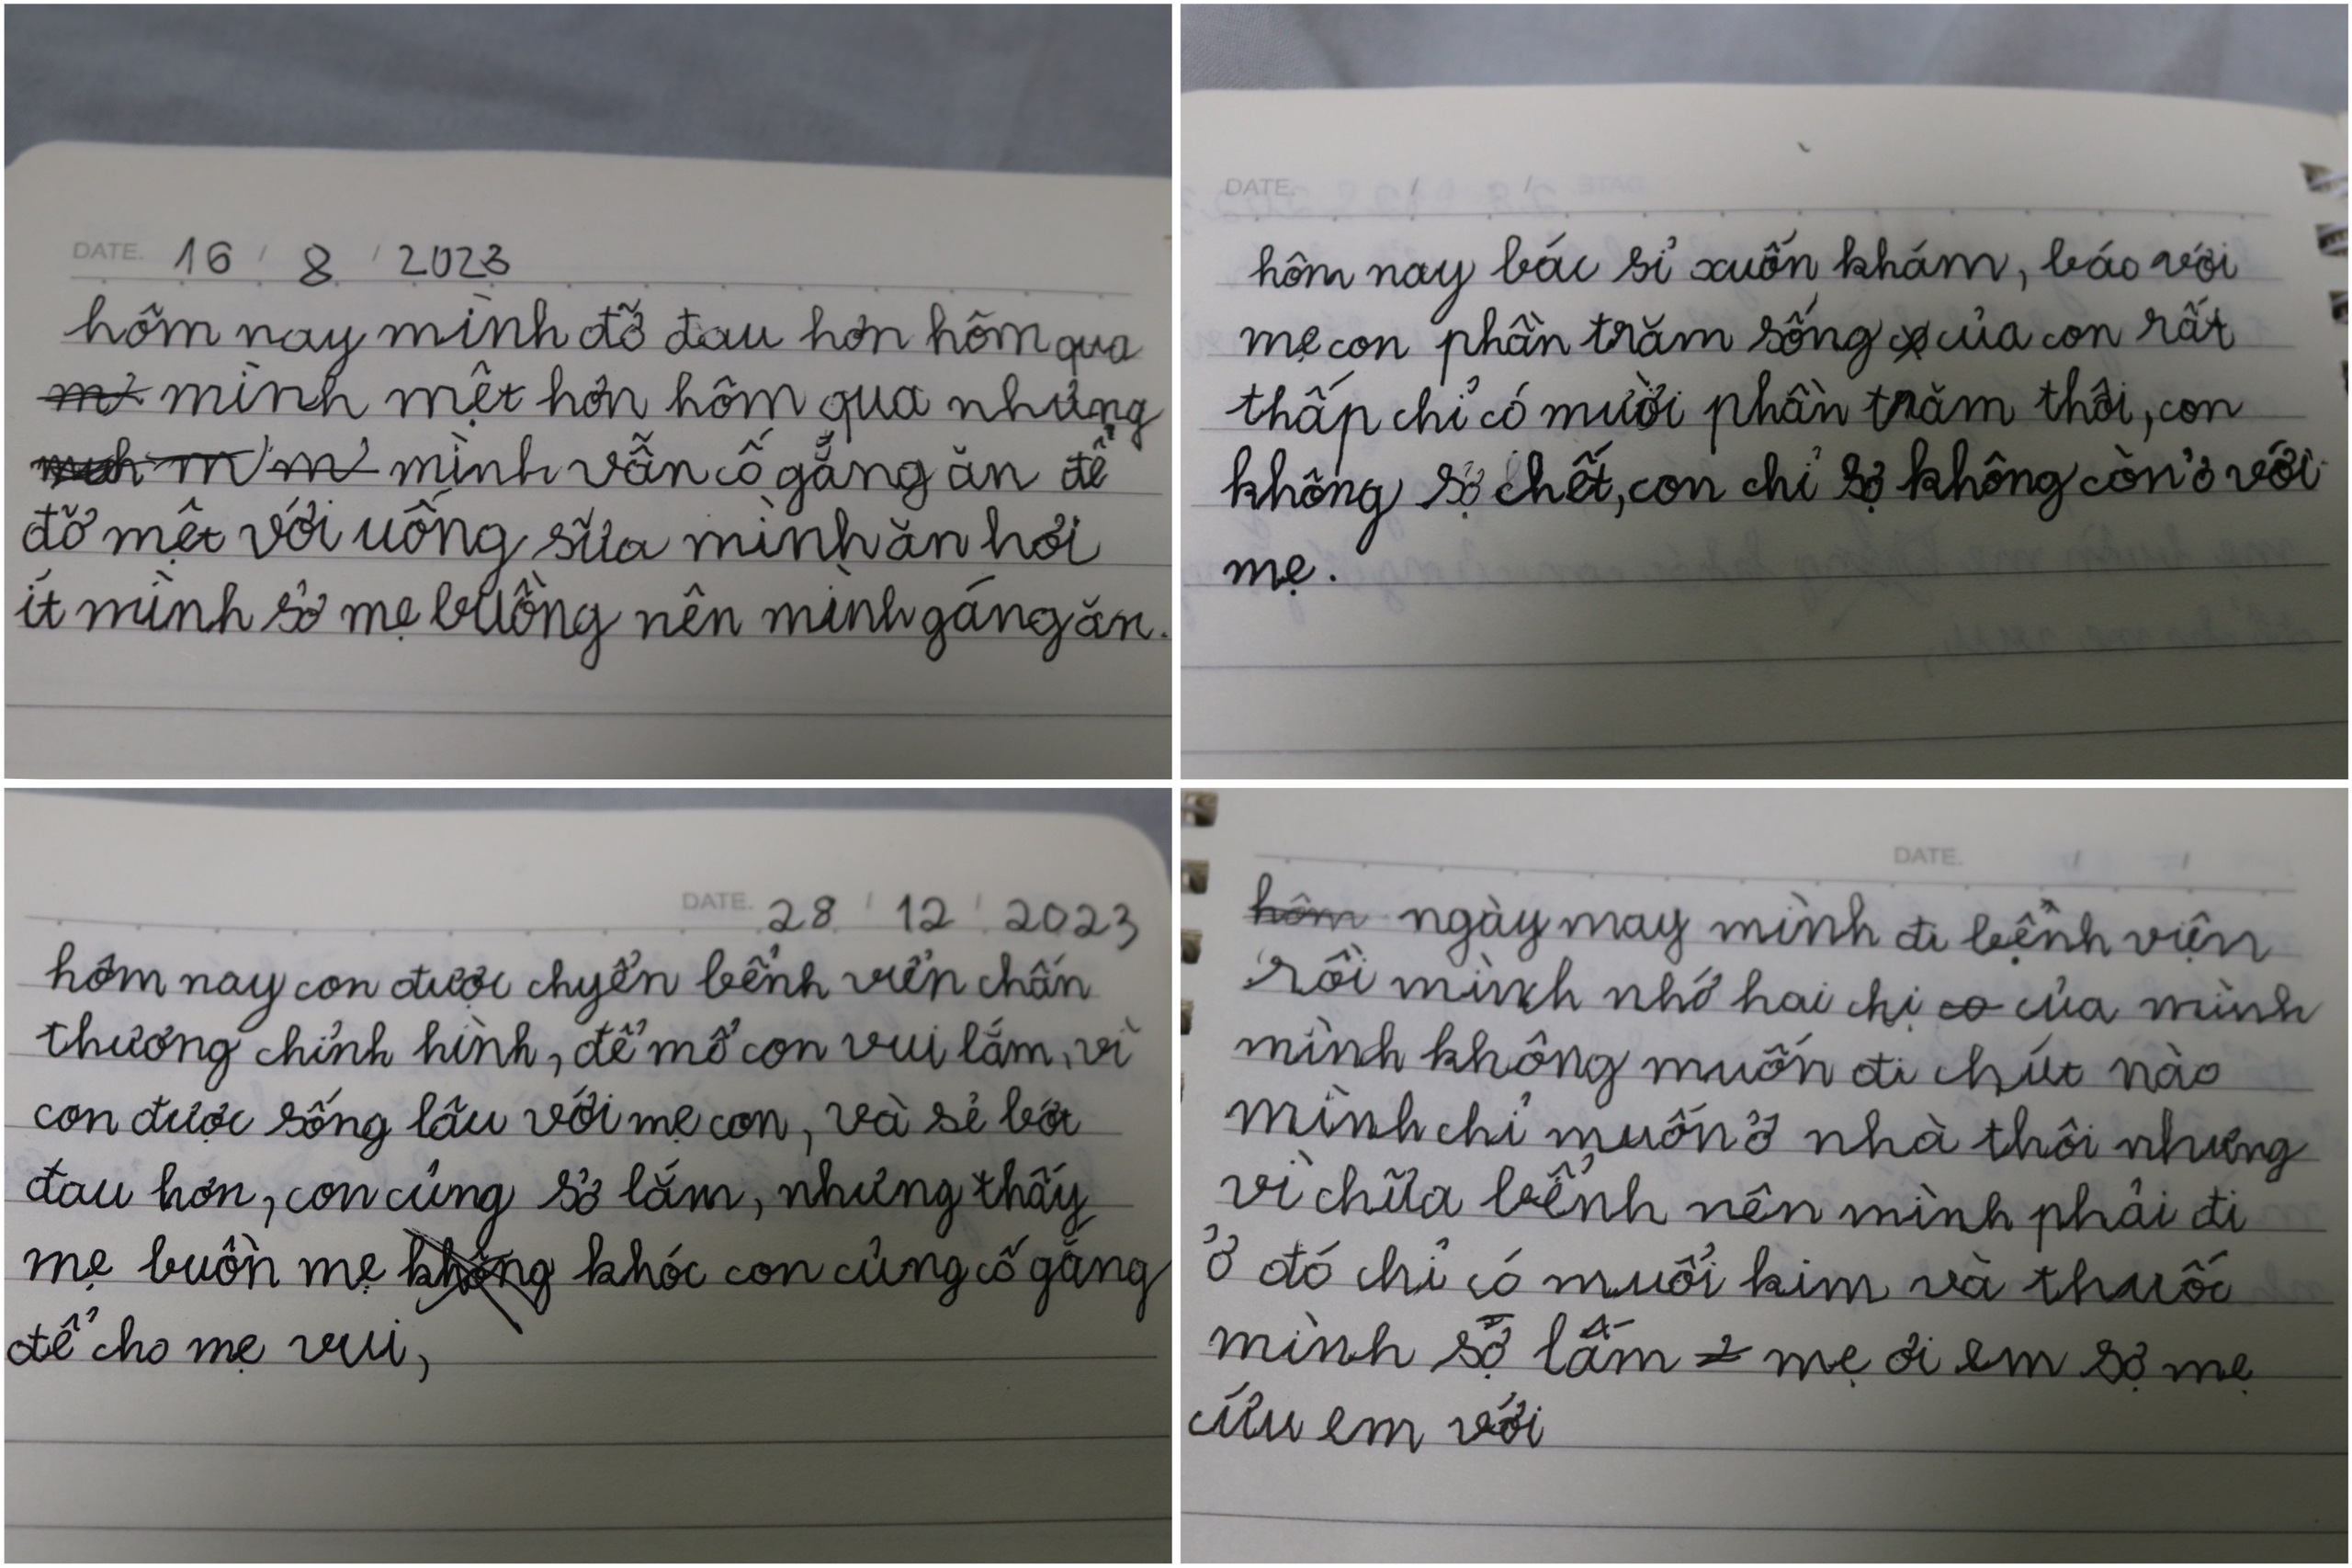 DATE. 16 / 8 / 2023
hôm nay mình đỡ đau hơn hôm qua
mình mệt hơn hôm qua nhưng
mình vẫn cố gắng ăn để
đỡ mệt với uống sữa mình ăn hơi
ít mình sợ mẹ buồng nên mình gáng ăn.
DATE. / /
hôm nay bác sỉ xuốn khám, báo với
mẹ con phần trăm sống của con rất
thấp chỉ có mười phần trăm thôi, con
không sợ chết, con chỉ sợ không còn ở với
mẹ.
DATE. 28 / 12 / 2023
hôm nay con được chyển bểnh viển chấn
thương chỉnh hình, để mổ con vui lắm, vì
con được sống lâu với mẹ con, và sẻ bớt
đau hơn, con củng sợ lắm, nhưng thấy
mẹ buồn mẹ không khóc con củng cố gắng
để cho mẹ vui,
DATE. / /
hôm ngày may mình đi bệnh viện
rồi mình nhớ hai chị của mình
mình không muốn đi chút nào
mình chỉ muốn ở nhà thôi nhưng
vì chữa bểnh nên mình phải đi
ở đó chỉ có muổi kim và thuốc
mình sợ lắm mẹ ơi em sợ mẹ
cứu em với